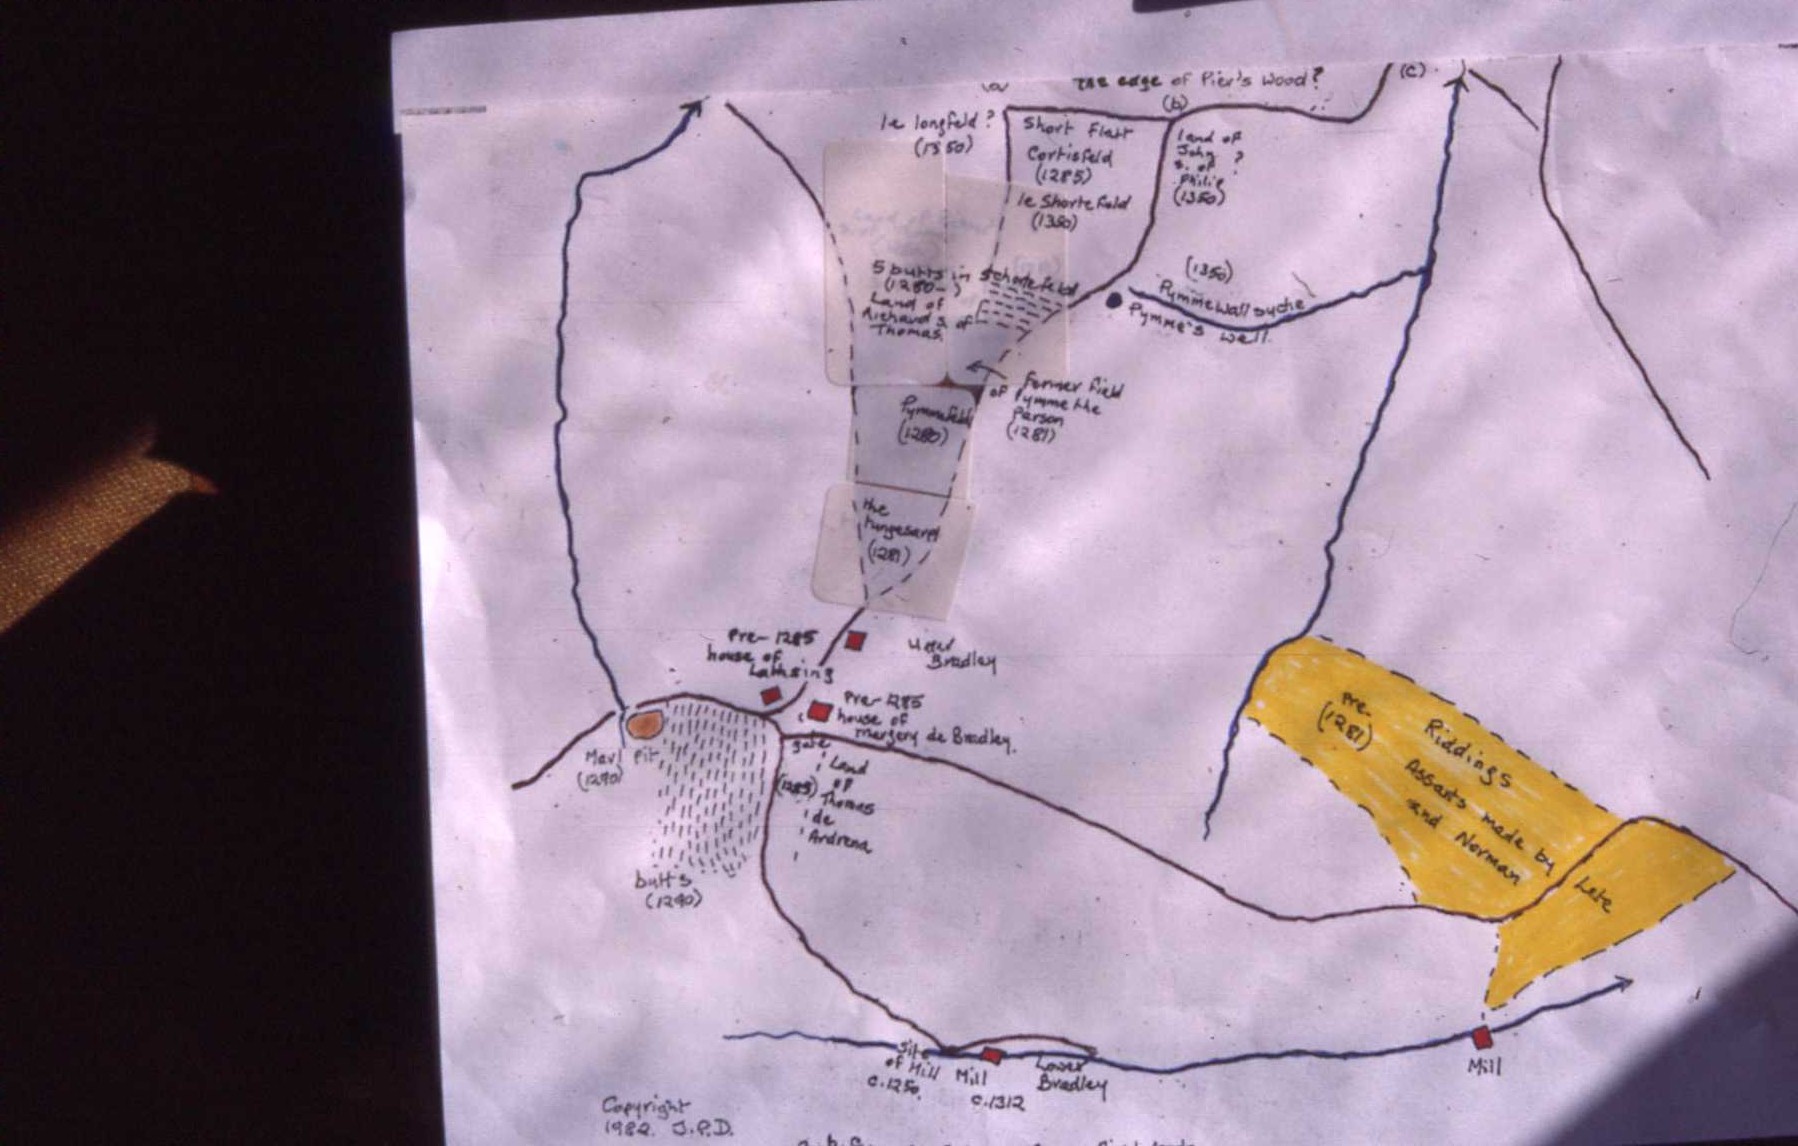 The edge of Pier's Wood?
(b)
(c)
le longfeld?
(1350)
Short Flatt
Cortisfeld
(1285)
le Shortefeld
(1350)
Land of
John ?
s. of
Philip
(1350)
5 butts in Schortefeld
(1280-)
Land of
Richard s. of
Thomas
(1350)
Pymmewallsyche
Pymme's well.
Former field
of Pymme the
Parson
(1281)
Pymmefeld
(1280)
the
(1281)
Pre-1285
house of
Upper
Bradley
Pre-1285
house of
Margery de Bradley.
gate
(1285)
Land
of
Thomas
de
Andrena
Marl Pit
(1290)
butts
(1290)
Pre
(1281)
Riddings
Assarts made by Late
and Norman
Site
of Mill
c.1250.
Mill
c.1312
Lower
Bradley
Mill
Copyright
1982. J.P.D.